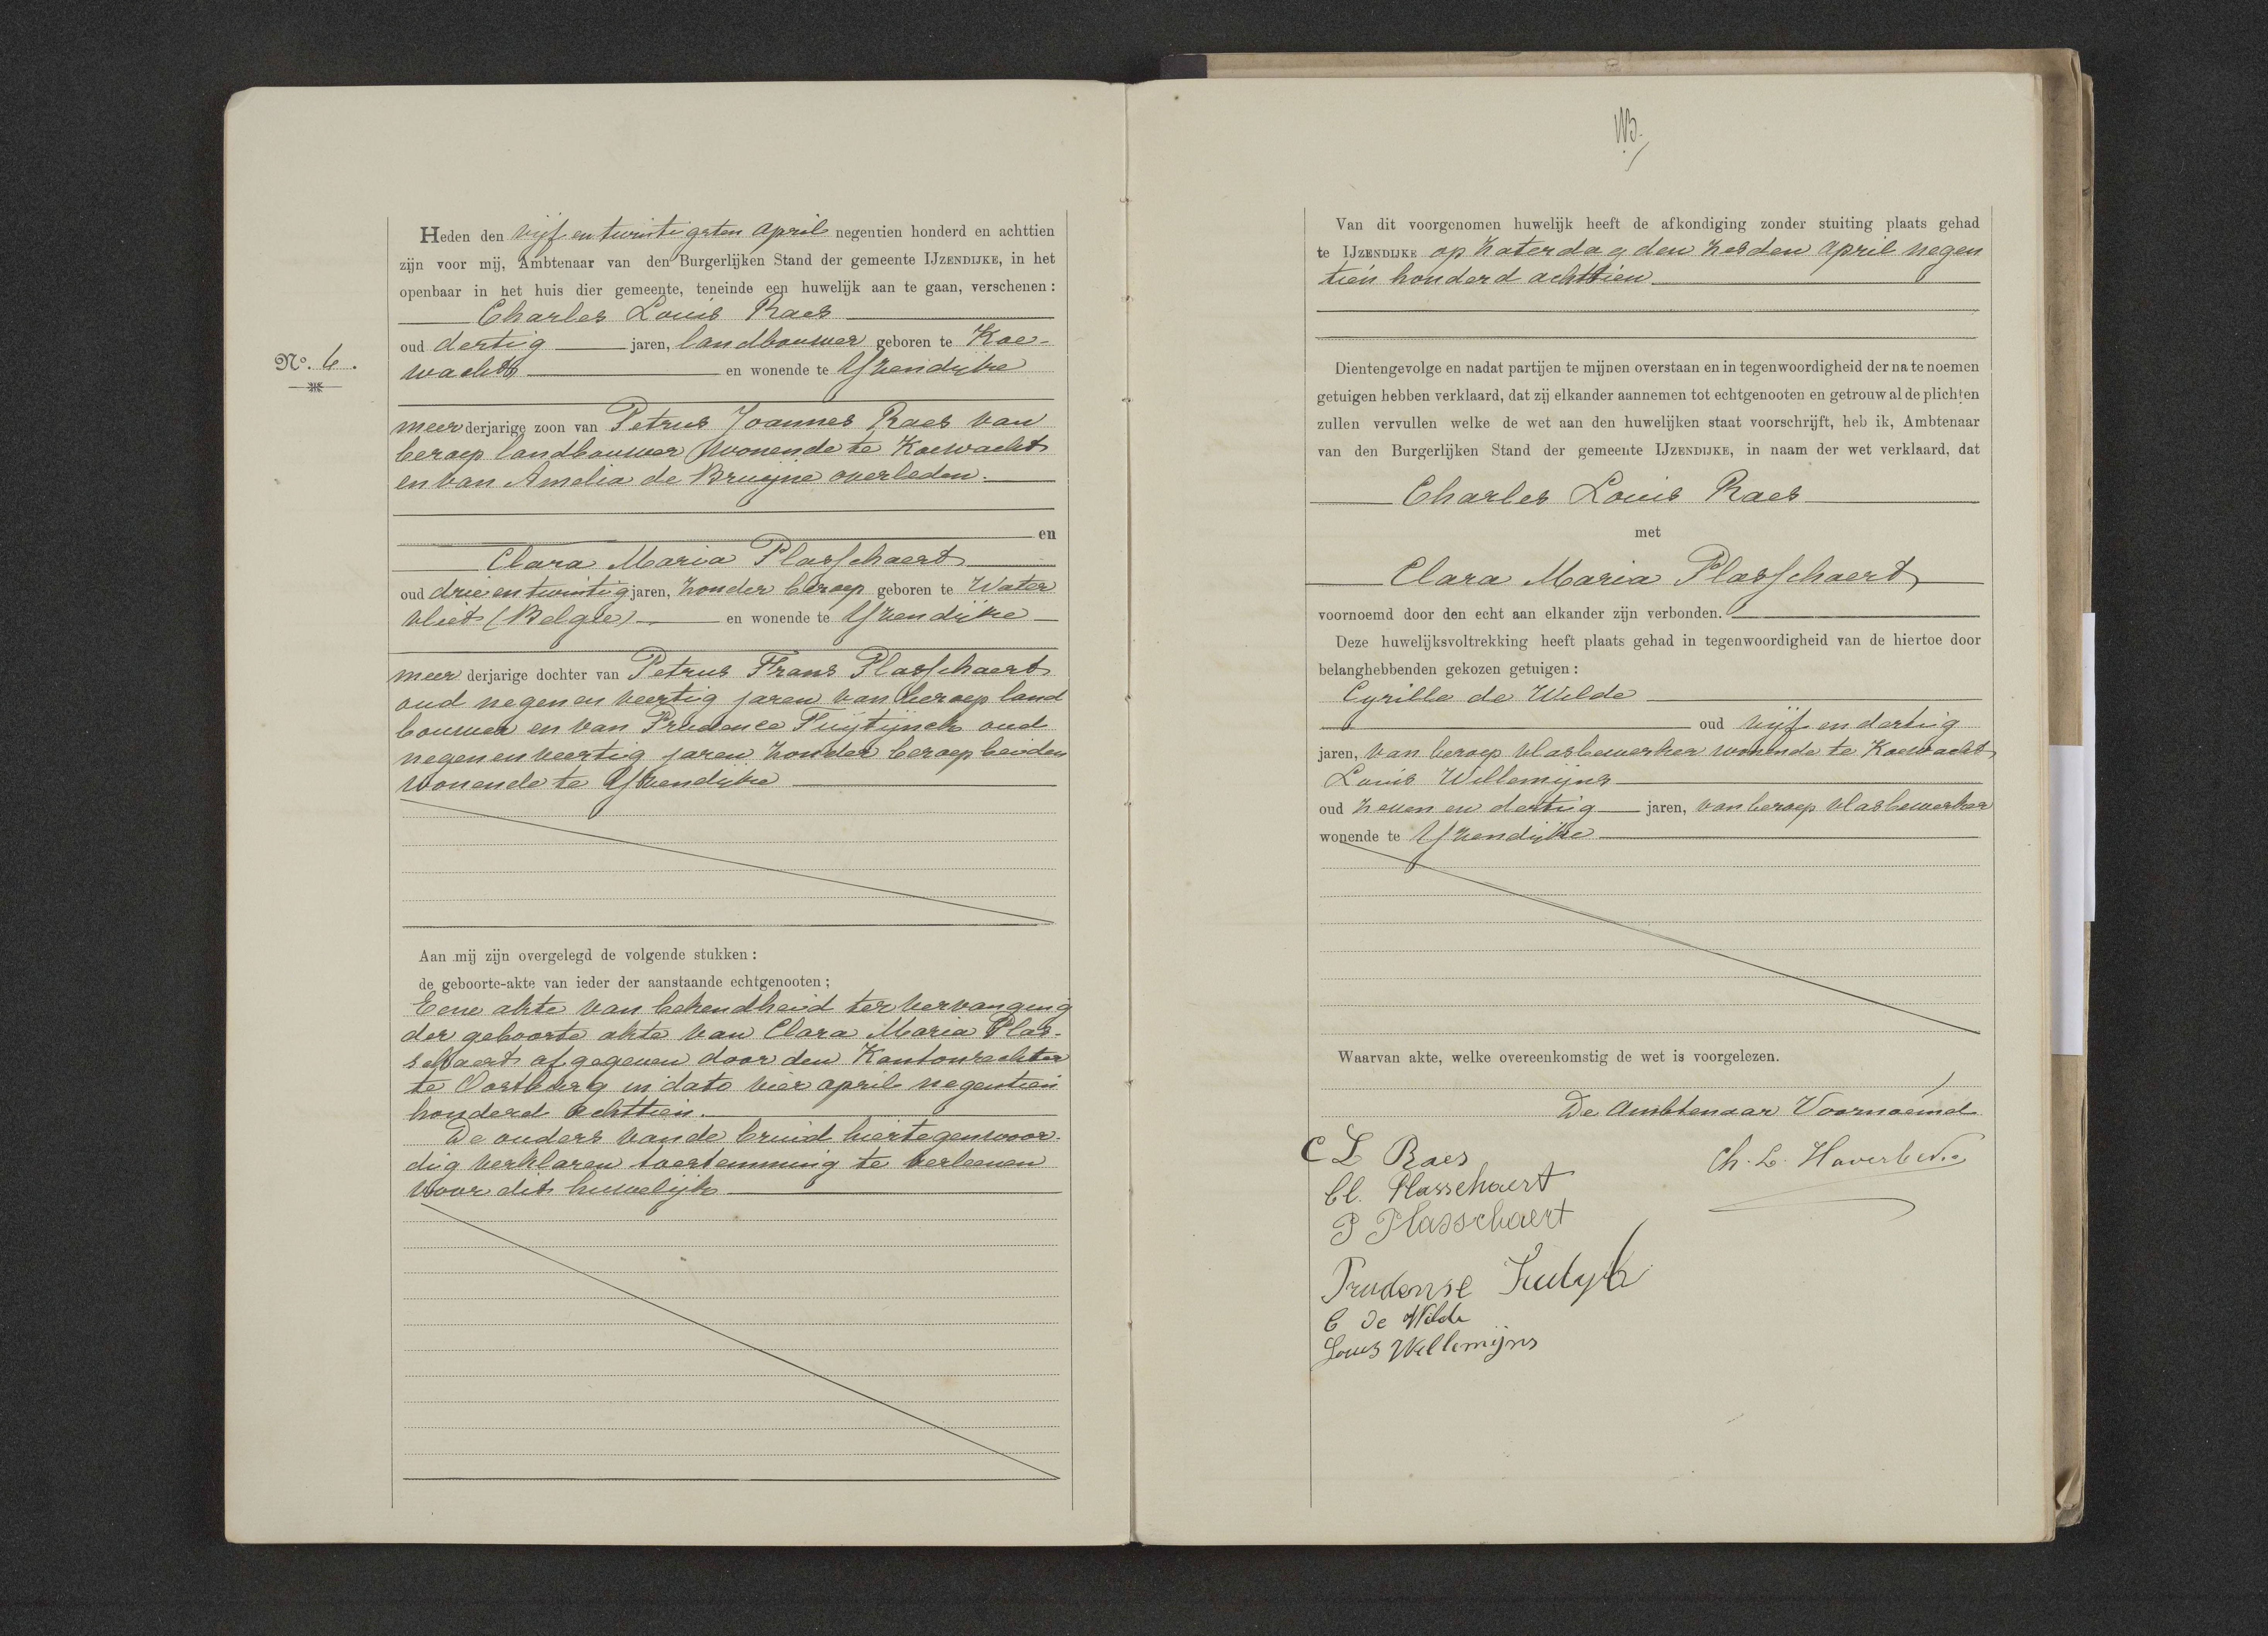 Heden den vijf en twintigsten April negentien honderd en achttien
zijn voor mij, Ambtenaar van den Burgerlijken Stand der gemeente IJZENDIJKE, in het
openbaar in het huis dier gemeente, teneinde een huwelijk aan te gaan, verschenen:
Charles Louis Raes
oud dertig jaren, landbouwer geboren te Koe-
No. 6.
wacht en wonende te IJzendijke
meerderjarige zoon van Petrus Joannes Raes van
beroep landbouwer wonende te Koewacht
en van Amelia de Bruijne overleden.
en
Clara Maria Plasschaert
oud drie en twintig jaren, zonder beroep geboren te Water
vliet (Belgie) en wonende te IJzendijke
meerderjarige dochter van Petrus Frans Plasschaert
oud negen en veertig jaren van beroep land
bouwer en van Prudence Fuijtijnck oud
negen en veertig jaren zonder beroep beiden
wonende te IJzendijke
Aan mij zijn overgelegd de volgende stukken:
de geboorte-akte van ieder der aanstaande echtgenooten;
Eene akte van bekendheid ter vervanging
der geboorte akte van Clara Maria Plas-
schaert afgegeven door den Kantonrechter
te Oostburg in dato vier april negentien
honderd achttien.
De ouders van de bruid hiertegenwoor-
dig verklaren toestemming te verleenen
voor dit huwelijk
Van dit voorgenomen huwelijk heeft de afkondiging zonder stuiting plaats gehad
te IJZENDIJKE op Zaterdag den zesden April negen
tien honderd achttien
Dientengevolge en nadat partijen te mijnen overstaan en in tegenwoordigheid der na te noemen
getuigen hebben verklaard, dat zij elkander aannemen tot echtgenooten en getrouw al de plichten
zullen vervullen welke de wet aan den huwelijken staat voorschrijft, heb ik, Ambtenaar
van den Burgerlijken Stand der gemeente IJZENDIJKE, in naam der wet verklaard, dat
Charles Louis Raes
met
Clara Maria Plasschaert
voornoemd door den echt aan elkander zijn verbonden.
Deze huwelijksvoltrekking heeft plaats gehad in tegenwoordigheid van de hiertoe door
belanghebbenden gekozen getuigen:
Cyrille de Wilde
oud vijf en dertig
jaren, van beroep vlasbewerker wonende te Koewacht
Louis Willemijns
oud zeven en dertig jaren, van beroep vlasbewerker
wonende te IJzendijke
Waarvan akte, welke overeenkomstig de wet is voorgelezen.
De Ambtenaar Voornoemd
C L Raes
Ch. L.
Cl. Plasschaert
P Plasschaert
Prudense
C de Wilde
Louis Willemijns